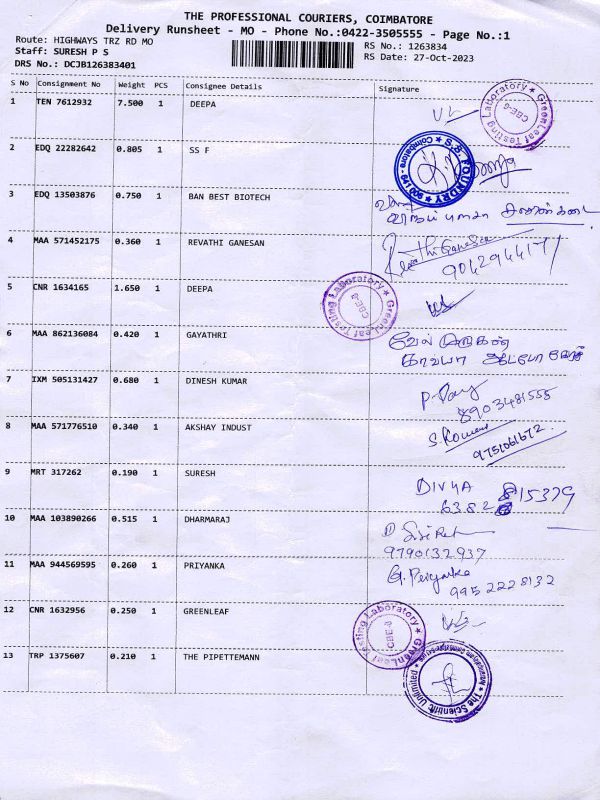 THE PROFESSIONAL COURIERS, COIMBATORE
Delivery Runsheet - MO - Phone No.:0422-3505555 - Page No.:1
Route: HIGHWAYS TRZ RD MO
RS No.: 1263834
Staff: SURESH P S
RS Date: 27-Oct-2023
DRS No.: DCJB126383401
S No Consignment No Weight PCS Consignee Details Signature
1 TEN 7612932 7.500 1 DEEPA
GreenLeaf Testing Laboratory CBE-6
2 EDQ 22282642 0.805 1 SS F
S.B. FOUNDRY Coimbatore - 641 006
3 EDQ 13503876 0.750 1 BAN BEST BIOTECH
4 MAA 571452175 0.360 1 REVATHI GANESAN
Revathi Ganesan
9042944171
5 CNR 1634165 1.650 1 DEEPA
GreenLeaf Testing Laboratory CBE-6
6 MAA 862136084 0.420 1 GAYATHRI
வேல் முருகன்
7 IXM 505131427 0.680 1 DINESH KUMAR
8903481555
8 MAA 571776510 0.340 1 AKSHAY INDUST
9751061672
9 MRT 317262 0.190 1 SURESH
DIVYA
6382 815379
10 MAA 103890266 0.515 1 DHARMARAJ
9790132937
11 MAA 944569595 0.260 1 PRIYANKA
G. Priyanka
9952228132
12 CNR 1632956 0.250 1 GREENLEAF
GreenLeaf Testing Laboratory CBE-6
13 TRP 1375607 0.210 1 THE PIPETTEMANN
The Scientist Unlimited